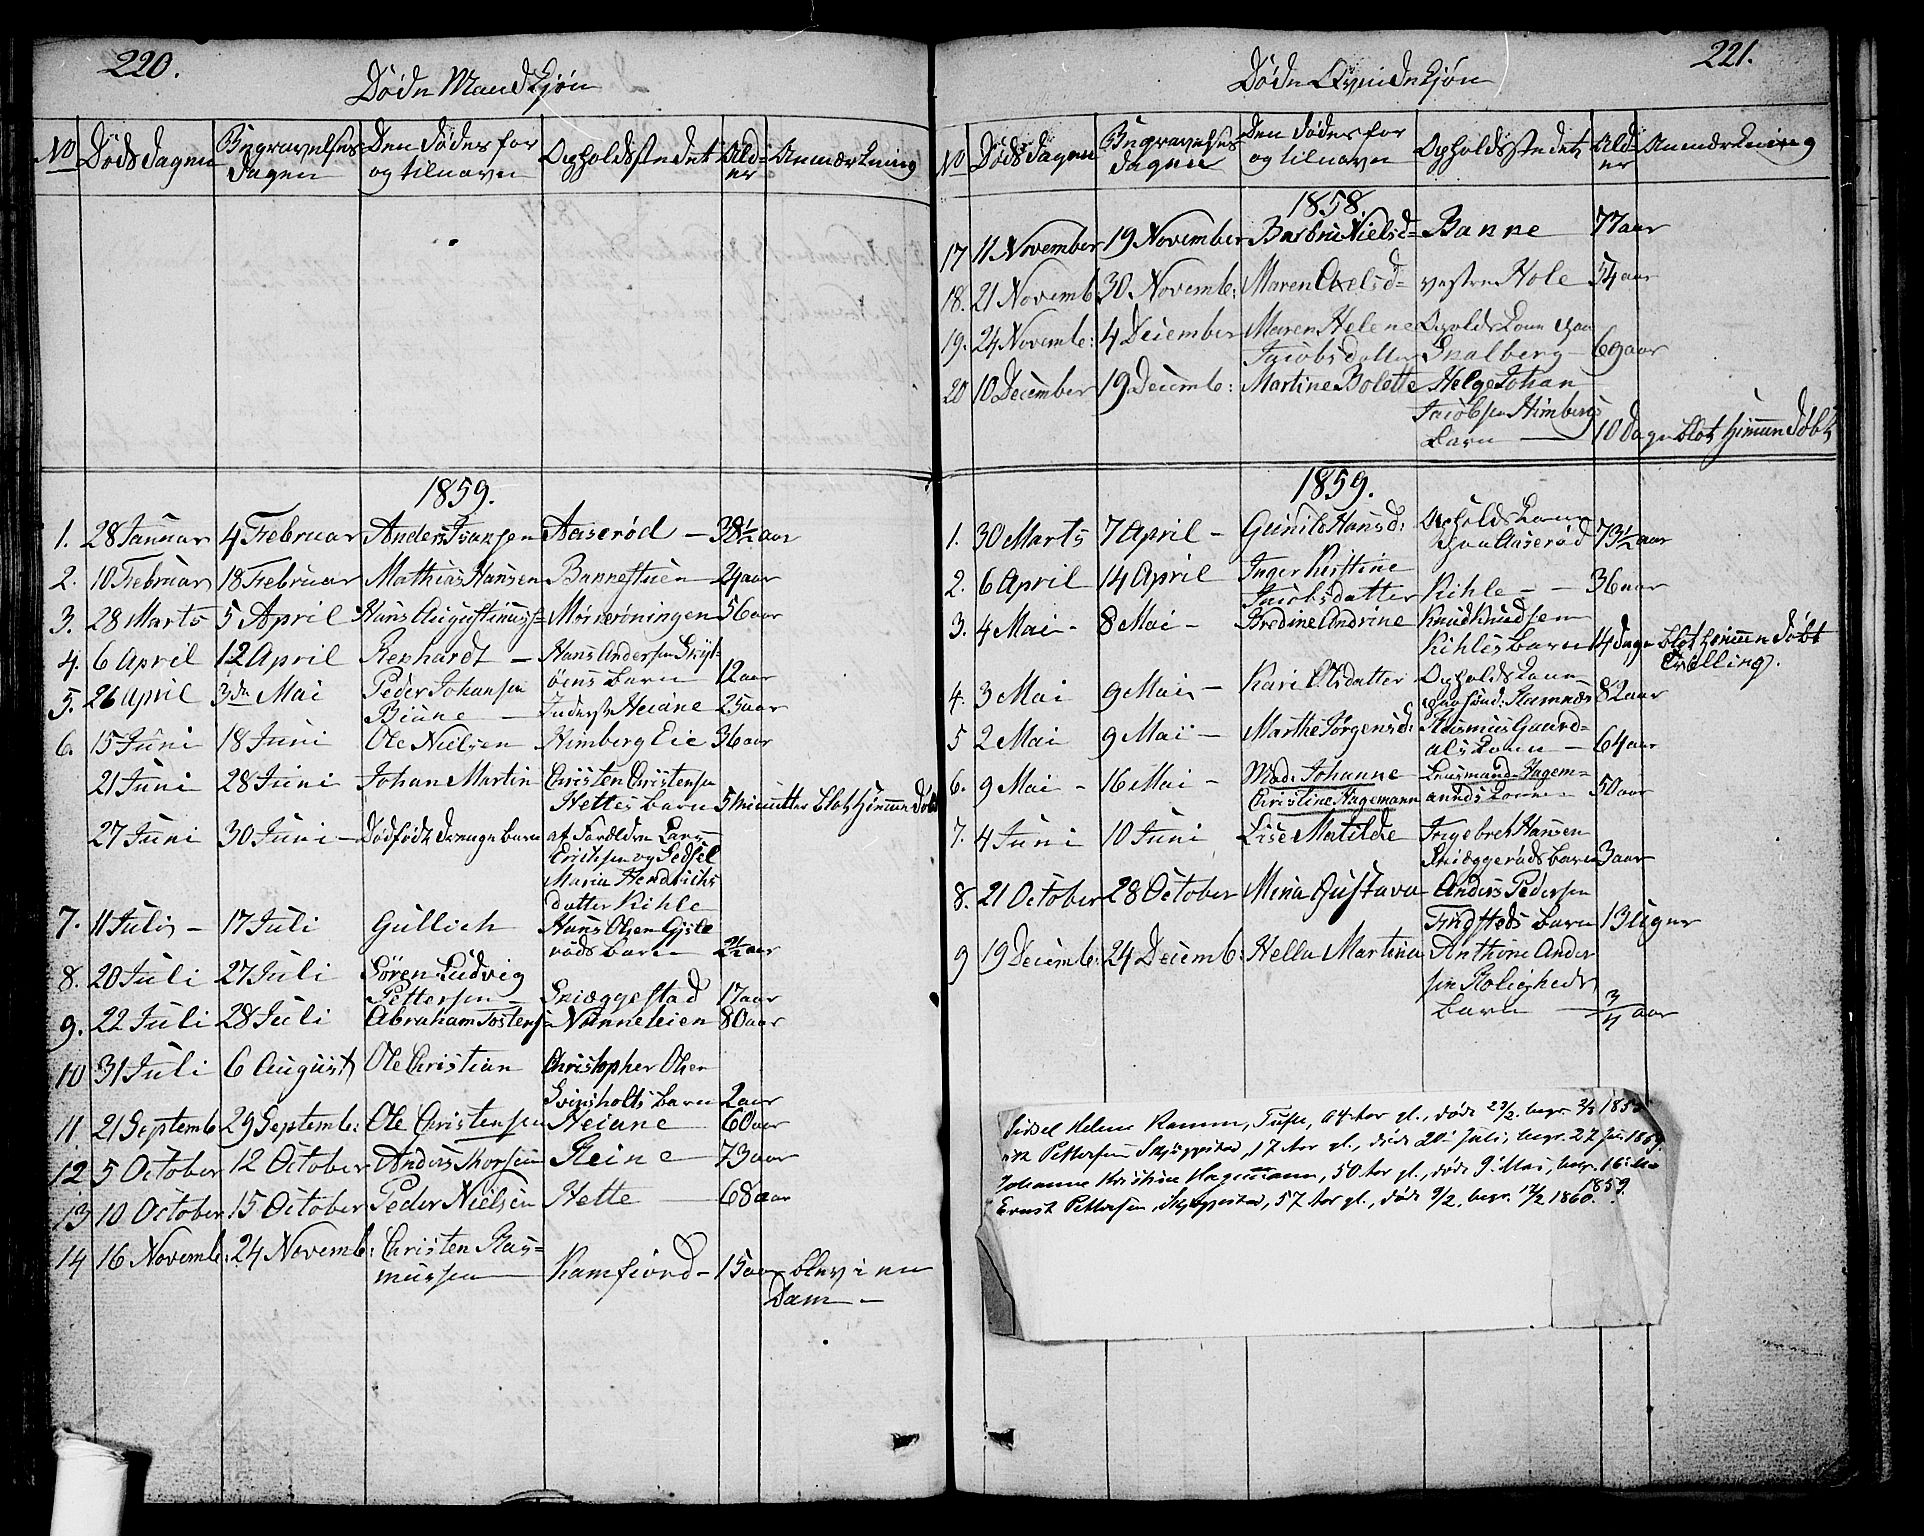 220.
Døde Mandkjøn
No Døds Dagen Begravelses Dagen Den Dødes for og tilnavn Opholdsstedet Alder Anmærkning
1859.
1. 28 Januar 4 Februar Anders Ivarsen Aaserød — 38½ aar
2. 10 Februar 18 Februar Mathias Hansen Bannestuen 24 aar
3. 28 Marts 5 April Hans Augustinuss= Mørerøningen 56 aar
4. 6 April 12 April Rephardt — Hans Andersen
øens barn 12 aar
5. 26 April 3de Mai Peder Johansen
— Inderst Heiane 25 aar
6. 15 Juni 18 Juni Ole Nielsen Himberg Eie 36 aar
21 Juni 28 Juni Johan Martin Christen Christensen
Hettes barn 5 minutter blot hjemme Døbt
27 Juni 30 Juni — Dødfødt Drenge barn af Forældre Lars
Erichsen og Sedsel
Maria Hendrichs
datter Kihle
7. 11 Juli — 17 Juli Gullich Hans Olsen
røds barn 2½ aar
8. 20 Juli 27 Juli Søren Ludvig
Pettersen — Skiæggestad 17 aar
9. 22 Juli 28 Juli Abraham Tostens= Nønneleien 80 aar
10 31 Juli 6 August Ole Christian Christopher Olsen
Svinsholts barn 2 aar
11. 21 Septemb 29 Septemb: Ole Christensen Heiane 60 aar
12 5 October 12 October Anders Thorsen Steine — 73 aar
13 10 October 15 October Peder Nielsen Hette — 68 aar
14 16 Novemb: 24 Novemb: Christen Ras=
mussen Ramfiord — 15 aar blev i en
Dam —
221.
Døde Qvindekjøn
No Døds Dagen Begravelses Dagen Den Dødes for og tilnavn Opholdsstedet Alder Anmærkning
1858.
17 11 November 19 November Barbru Nielsd= Banne 77 aar
18. 21 Novemb 30 Novemb: Maren Axelsd= vestre Hole 54 aar
19. 24 Novemb: 4 December Maren Helene Opholds Kone paa
Jacobsdatter Snalberg — 69 aar
20 10 December 19 Decemb: Martine Bolette Helge Johan
Jacobsen Himbergs
barn — 10 Dage blot hjemme Døbt
1859.
1. 30 Marts 7 April — Gunild Hansd: Opholds Kone
paa Aaserød 73½ aar
2. 6 April 14 April Inger Kirstine
Jacobsdatter Kihle — — 36 aar
3. 4 Mai — 8 Mai — Bredine Andrine Knud Knudsen
Kihles barn 14 Dage blot hjemme Døbt
Tvilling.
4. 3 Mai 9 Mai — Kari Olsdatter Opholds Kone
paa Ramnæs 82 aar
5 2 Mai 9 Mai — Marthe Jørgensd: Rasmus Gaard=
als Kone — 64 aar
6. 9 Mai — 16 Mai — Mad: Johanne Lensmand Hagem=
Christine Hagemann annds Kone — 50 aar
7. 4 Juni 10 Juni Lise Matilde Ingebret Hansen
Skiæggerøds barn 3 aar
8. 21 October 28 October Mina Gustava Anders Pedersen
Findsteds barn 13 Uger
9 19 Decemb: 24 Decemb: Hella Martina Anthoni Ander
sen Roligheds
barn — 3/4 aar
Sidsel Helene Ramm, Tufte, 64 aar gl., døde 23/2. begr. 2/3 1855
Pettersen Skjeggestad, 17 aar gl., døde 20' Juli, begr. 27 Juli 1859.
Johanne Kristine Hagemann, 50 aar gl., døde 9' Mai, begr. 16'
1859.
Ernst Pettersen, Skjeggestad, 57 aar gl., døde 9/2. begr. 17/2 1860.